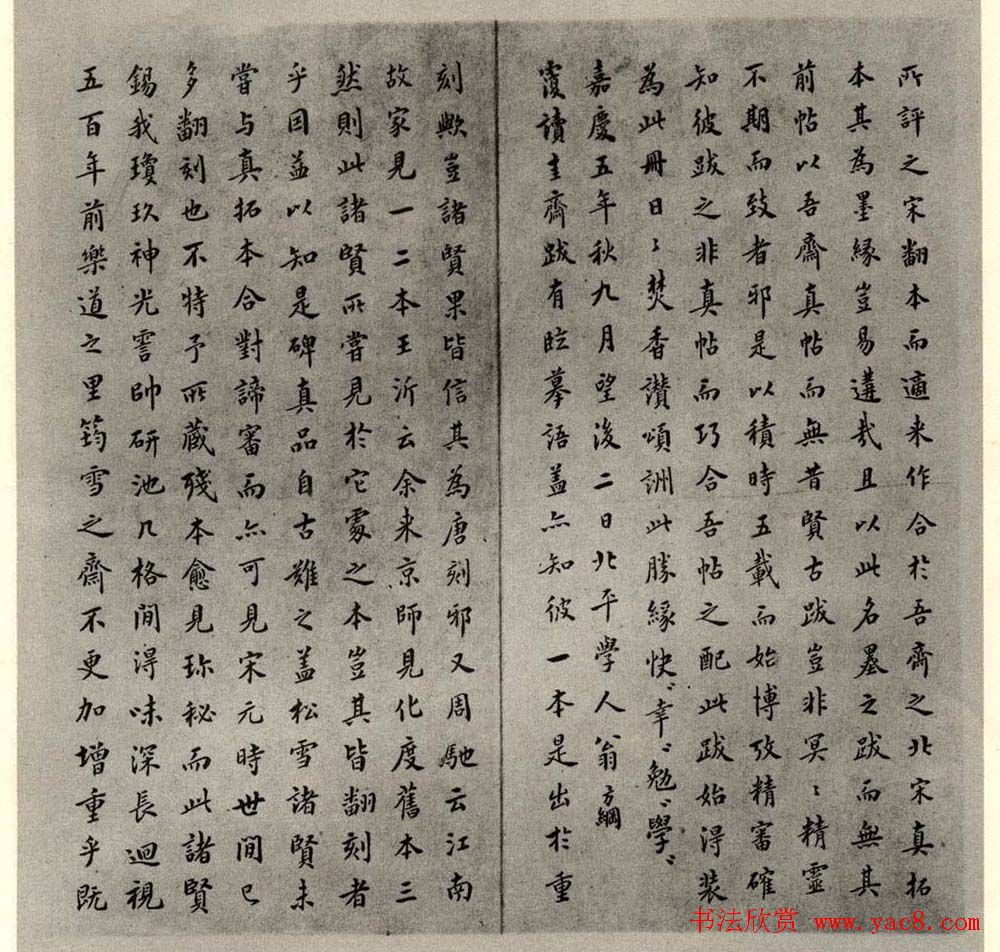 所評之宋翻本而適来作合於吾齋之北宋真拓
本其為墨緣豈易遘㢤且以此名墨之跋而無其
前帖以吾齋真帖而無昔賢古跋豈非冥〻精靈
不期而致者邪是以積時五載而始博攷精審確
知彼跋之非真帖而巧合吾帖之配此跋始得装
為此冊日〻焚香讚頌詶此勝緣快〻幸〻勉〻學〻
嘉慶五年秋九月望後二日北平學人翁方綱
覆讀圭齋跋有臨摹語盖亦知彼一本是出於重
刻歟豈諸賢果皆信其為唐刻邪又周馳云江南
故家見一二本王沂云余来京師見化度舊本三
然則此諸賢所嘗見於它處之本豈其皆翻刻者
乎因益以知是碑真品自古難之盖松雪諸賢未
嘗与真拓本合對諦審而亦可見宋元時世間已
多翻刻也不特予所蔵殘本愈見珎秘而此諸賢
錫我瓊玖神光霅帥研池几格間得味深長迴視
五百年前樂道之里筠雪之齋不更加增重乎既
书法欣赏 www.yac8.com